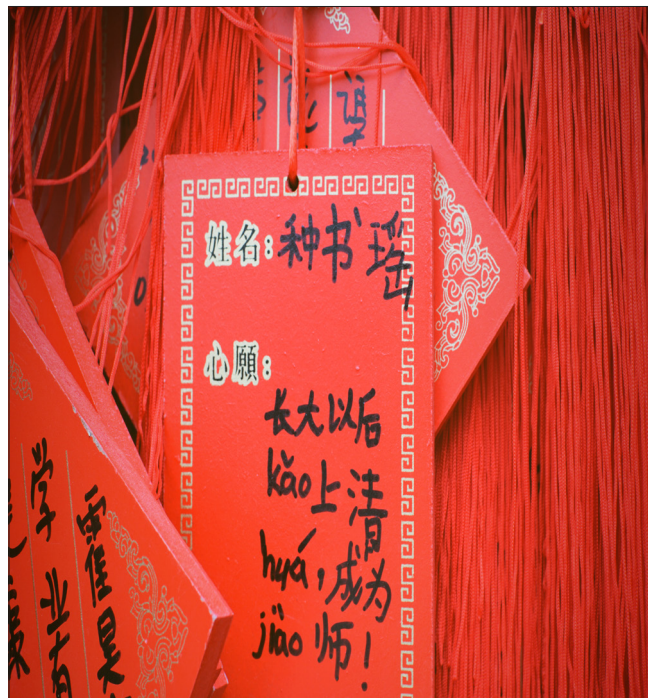 姓名:种书瑶
心願:
长大以后
kǎo上清
huá,成为
jiào师!
学业有
霍昊